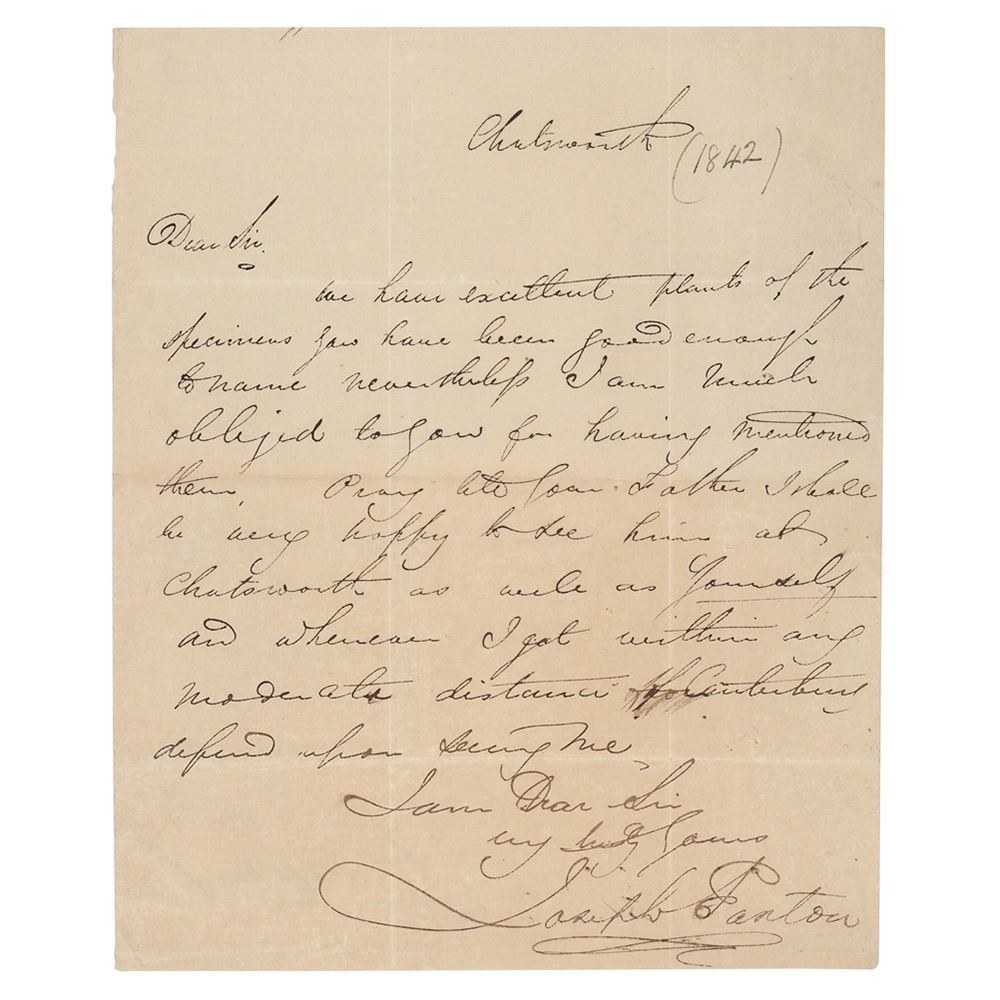 Chatsworth (1842)
Dear Sir.
we have excellent plants of the
specimens you have been good enough
to name nevertheless I am much
obliged to you for having mentioned
them. Pray your Father I shall
be very happy to see him at
Chatsworth as well as yourself
and whenever I get within any
moderate distance of Canterbury
depend upon seeing me
I am Dear Sir
very truly yours
Joseph Paxton